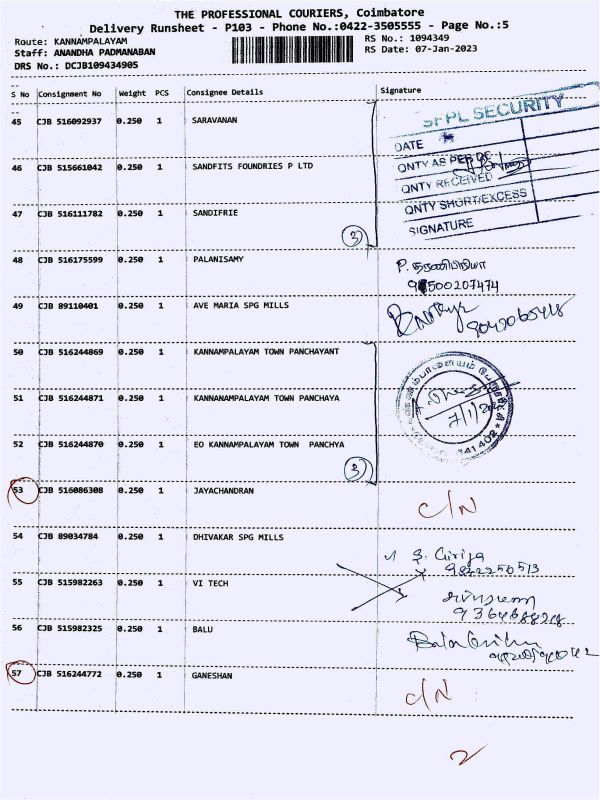 THE PROFESSIONAL COURIERS, Coimbatore
Delivery Runsheet - P103 - Phone No.:0422-3505555 - Page No.:5
Route: KANNAMPALAYAM
RS No.: 1094349
Staff: ANANDHA PADMANABAN
RS Date: 07-Jan-2023
DRS No.: DCJB109434905
S No Consignment No Weight PCS Consignee Details Signature
45 CJB 516092937 0.250 1 SARAVANAN
SFPL SECURITY
DATE
46 CJB 515661042 0.250 1 SANDFITS FOUNDRIES P LTD
QNTY AS PER DC
QNTY RECEIVED
47 CJB 516111782 0.250 1 SANDIFRIE
QNTY SHORT/EXCESS
SIGNATURE
3
48 CJB 516175599 0.250 1 PALANISAMY
P.
49 CJB 89110401 0.250 1 AVE MARIA SPG MILLS
50 CJB 516244869 0.250 1 KANNAMPALAYAM TOWN PANCHAYANT
51 CJB 516244871 0.250 1 KANNANAMPALAYAM TOWN PANCHAYA
52 CJB 516244870 0.250 1 EO KANNAMPALAYAM TOWN PANCHYA
641402
3
53 CJB 516086308 0.250 1 JAYACHANDRAN
C/N
54 CJB 89034784 0.250 1 DHIVAKAR SPG MILLS
S. Girija
55 CJB 515982263 0.250 1 VI TECH
56 CJB 515982325 0.250 1 BALU
57 CJB 516244772 0.250 1 GANESHAN
C/N
2